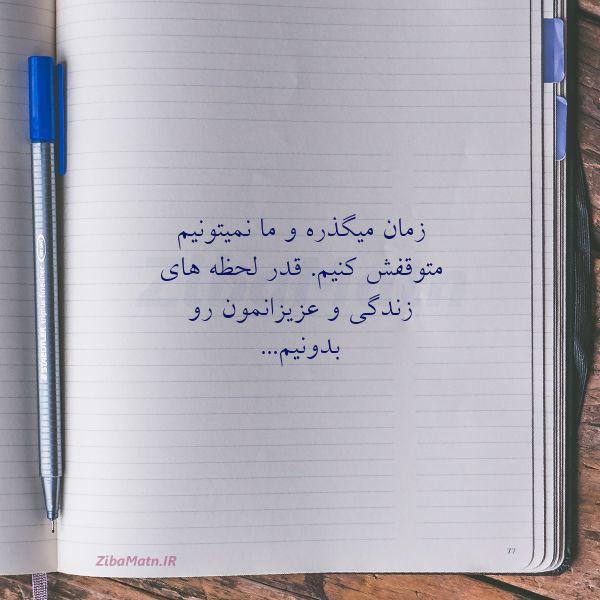 زمان میگذره و ما نمیتونیم
متوقفش کنیم. قدر لحظه های
زندگی و عزیزانمون رو
بدونیم...
ZibaMatn.IR
77